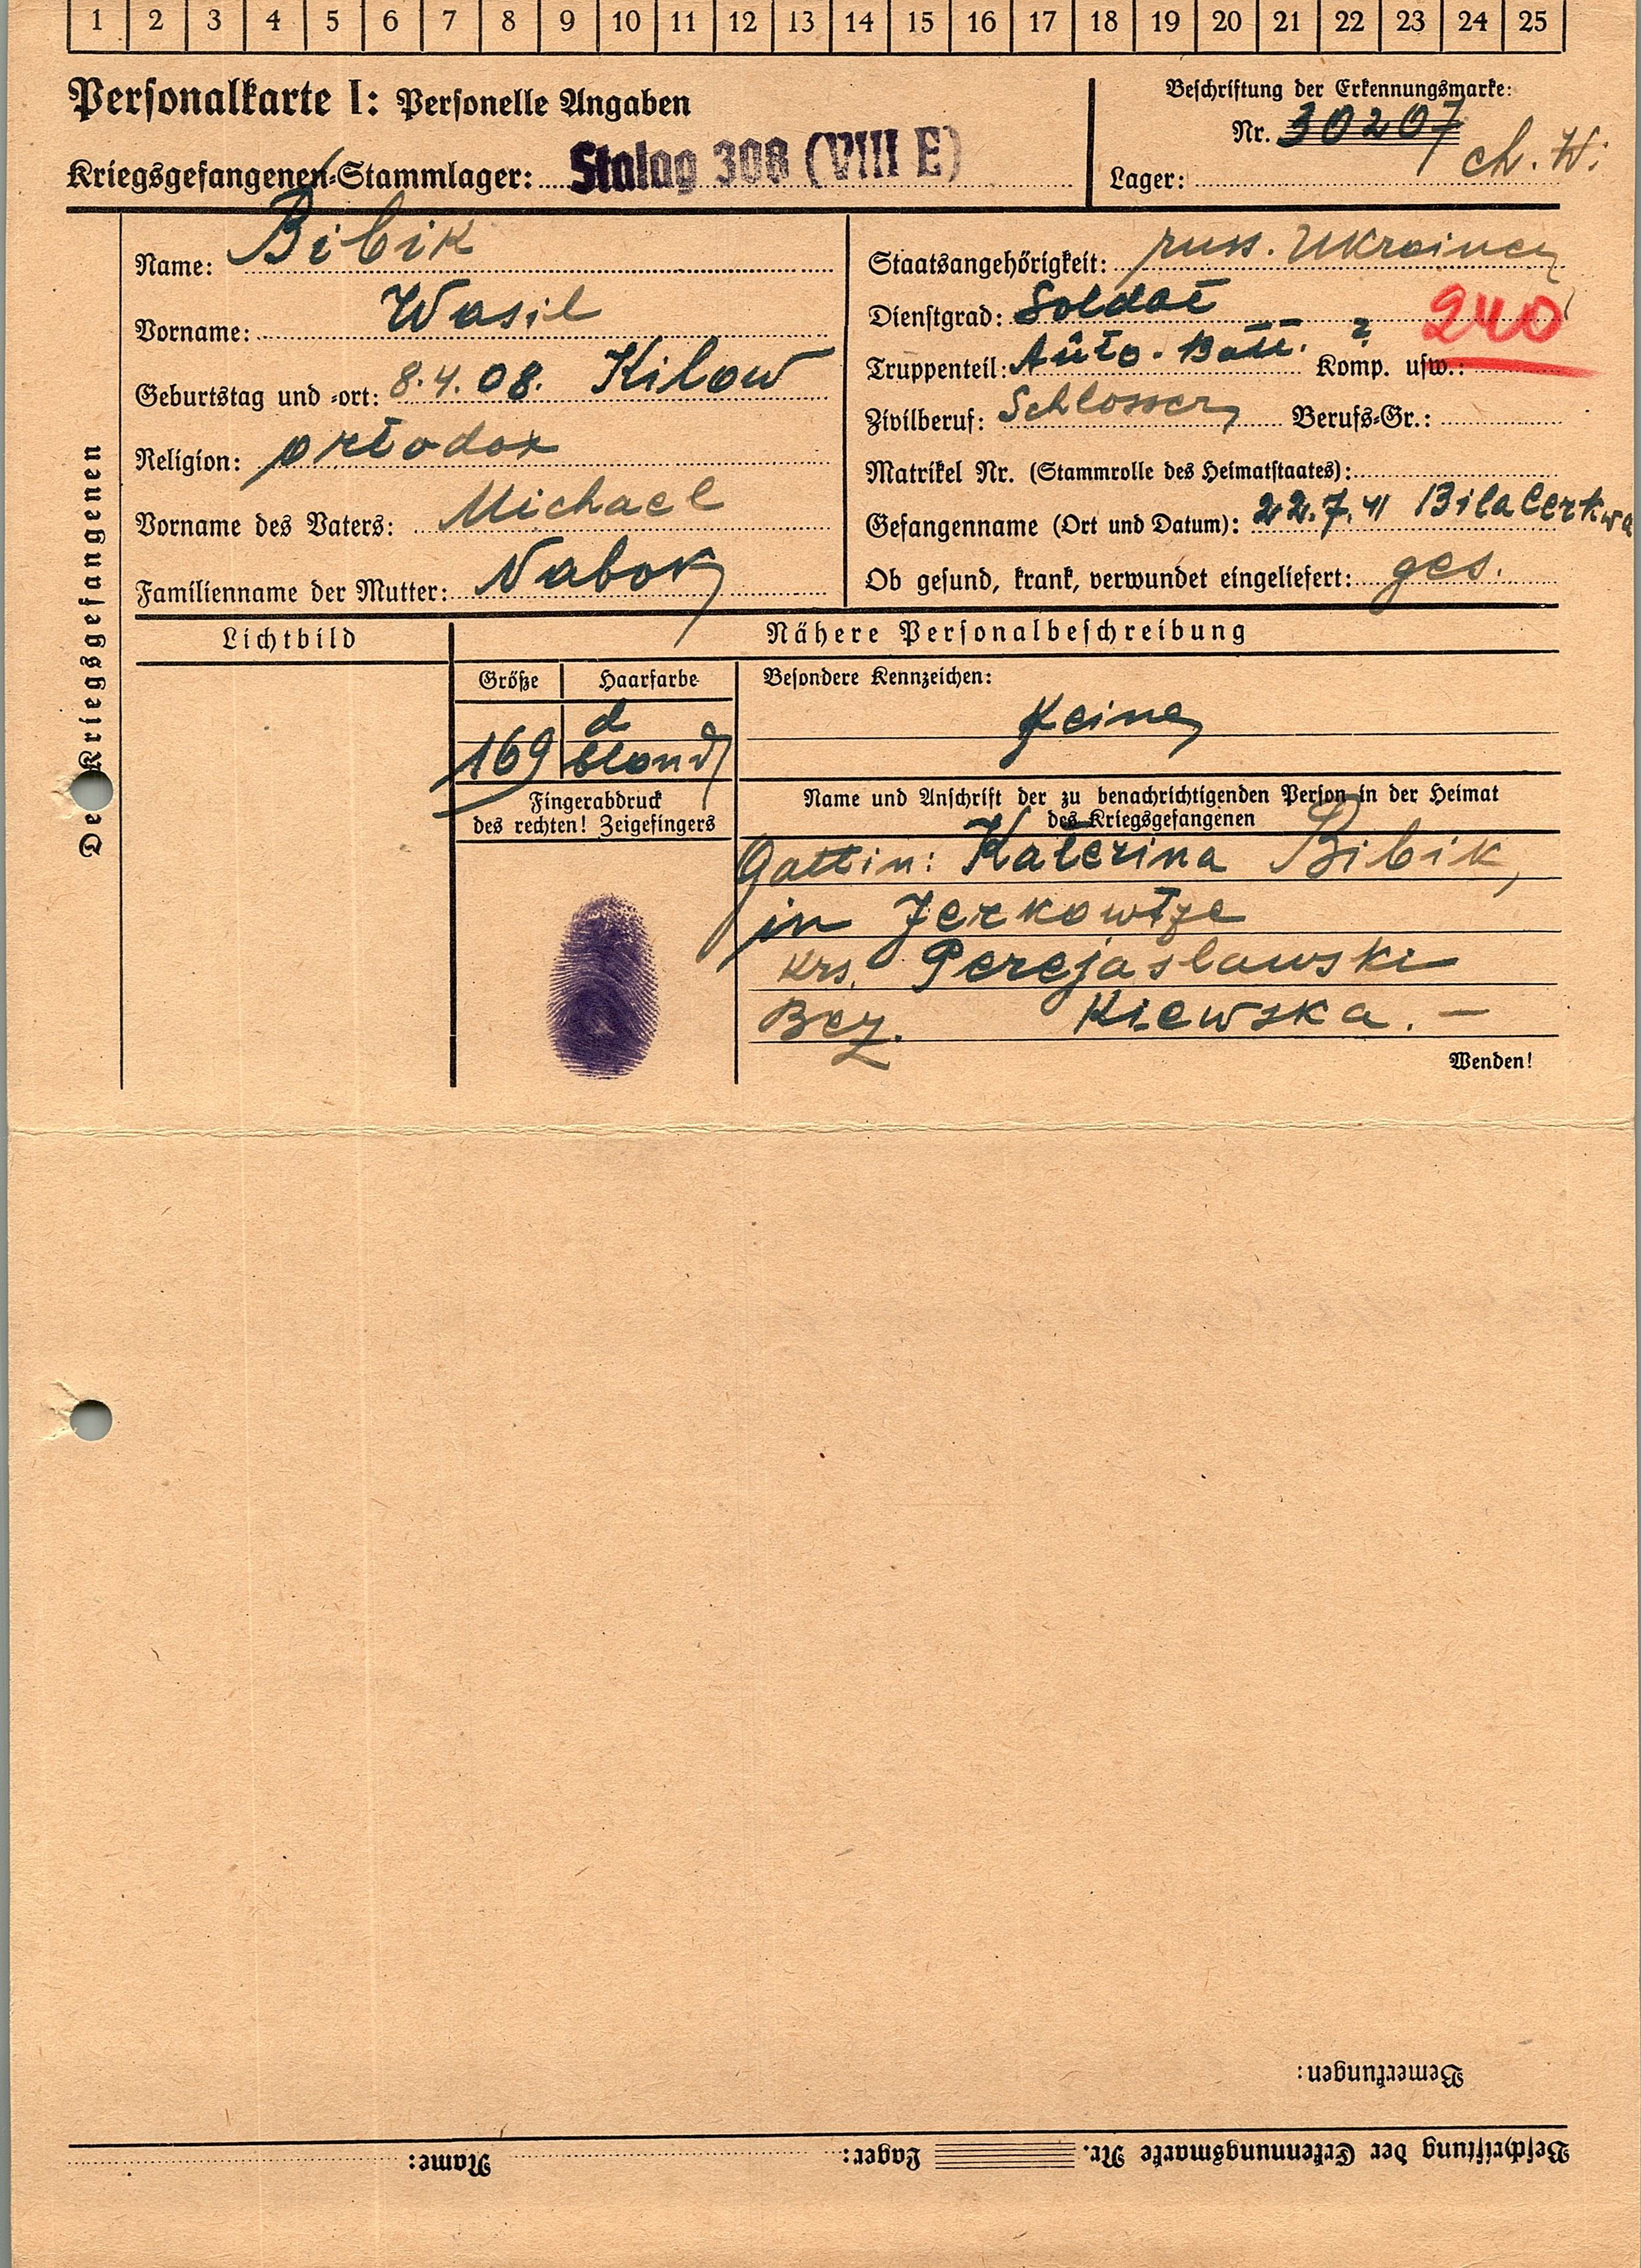 1 2 3 4 5 6 7 8 9 10 11 12 13 14 15 16 17 18 19 20 21 22 23 24 25
Personalkarte I: Personelle Angaben
Kriegsgefangenen-Stammlager: Stalag 308 (VIII E)
Beschriftung der Erkennungsmarke:
Nr. 30207
Lager: Ch. W.
Des Kriegsgefangenen
Name: Bibik
Vorname: Wasil
Geburtstag und -ort: 8.4.08. Kilow
Religion: ortodox
Vorname des Vaters: Michael
Familienname der Mutter: Nabok
Staatsangehörigkeit: russ. Ukrainer
Dienstgrad: Soldat
240
Truppenteil: Auto-Batt. ? Komp. usw.:
Zivilberuf: Schlosser Berufs-Gr.:
Matrikel Nr. (Stammrolle des Heimatstaates):
Gefangenname (Ort und Datum): 22.7.41 Bila Cerkwa
Ob gesund, krank, verwundet eingeliefert: ges.
Lichtbild
Nähere Personalbeschreibung
Größe
Haarfarbe
169
d
blond
Besondere Kennzeichen:
Keine
Fingerabdruck
des rechten! Zeigefingers
Name und Anschrift der zu benachrichtigenden Person in der Heimat
des Kriegsgefangenen
Gattin: Katerina Bibik,
in Jerkowtze
Krs. Perejaslawski
Bez. Kiewska. —
Wenden!
Bemerkungen:
Beschriftung der Erkennungsmarke Nr. Lager: Name: